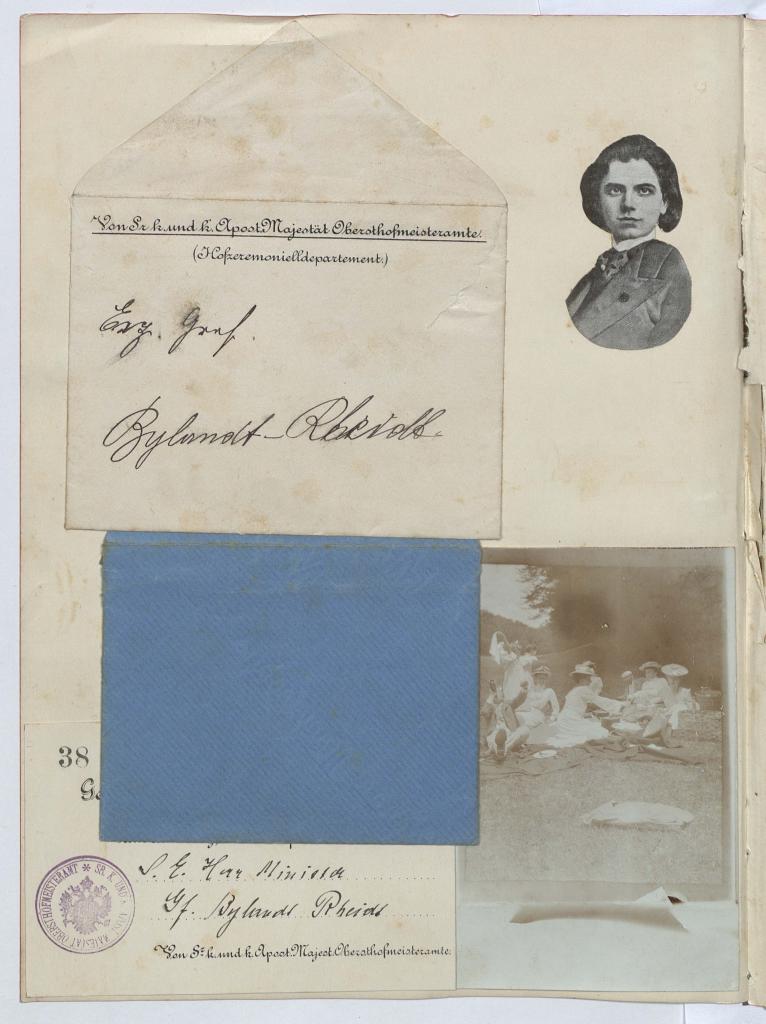 Von Sr. k. und k. Apost. Majestät Obersthofmeisteramte.
(Hofzeremonielldepartement.)
Exz. Graf.
Bylandt-Rheidt.
38
S. E. Herr Minister
Gf. Bylandt Rheidt
SR. K. UND K. APOST. MAJESTÄT OBERSTHOFMEISTERAMT *
Von Sr. k. und k. Apost. Majest. Obersthofmeisteramte.